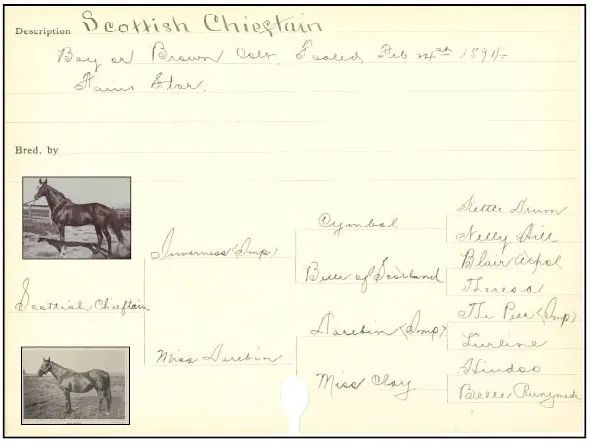 Description Scottish Chieftain
Bay or Brown Colt. Foaled Feb 24th 1894.
Star.
Bred. by
Scottish Chieftain
Inverness (Imp)
Miss Darebin
Cymbal
Belle of Scotland
Darebin (Imp)
Miss Clay
Kettle Drum
Nelly Hill
Blair Athol
Theresa
The Peer (Imp)
Lurline
Hindoo
Belle Runymede